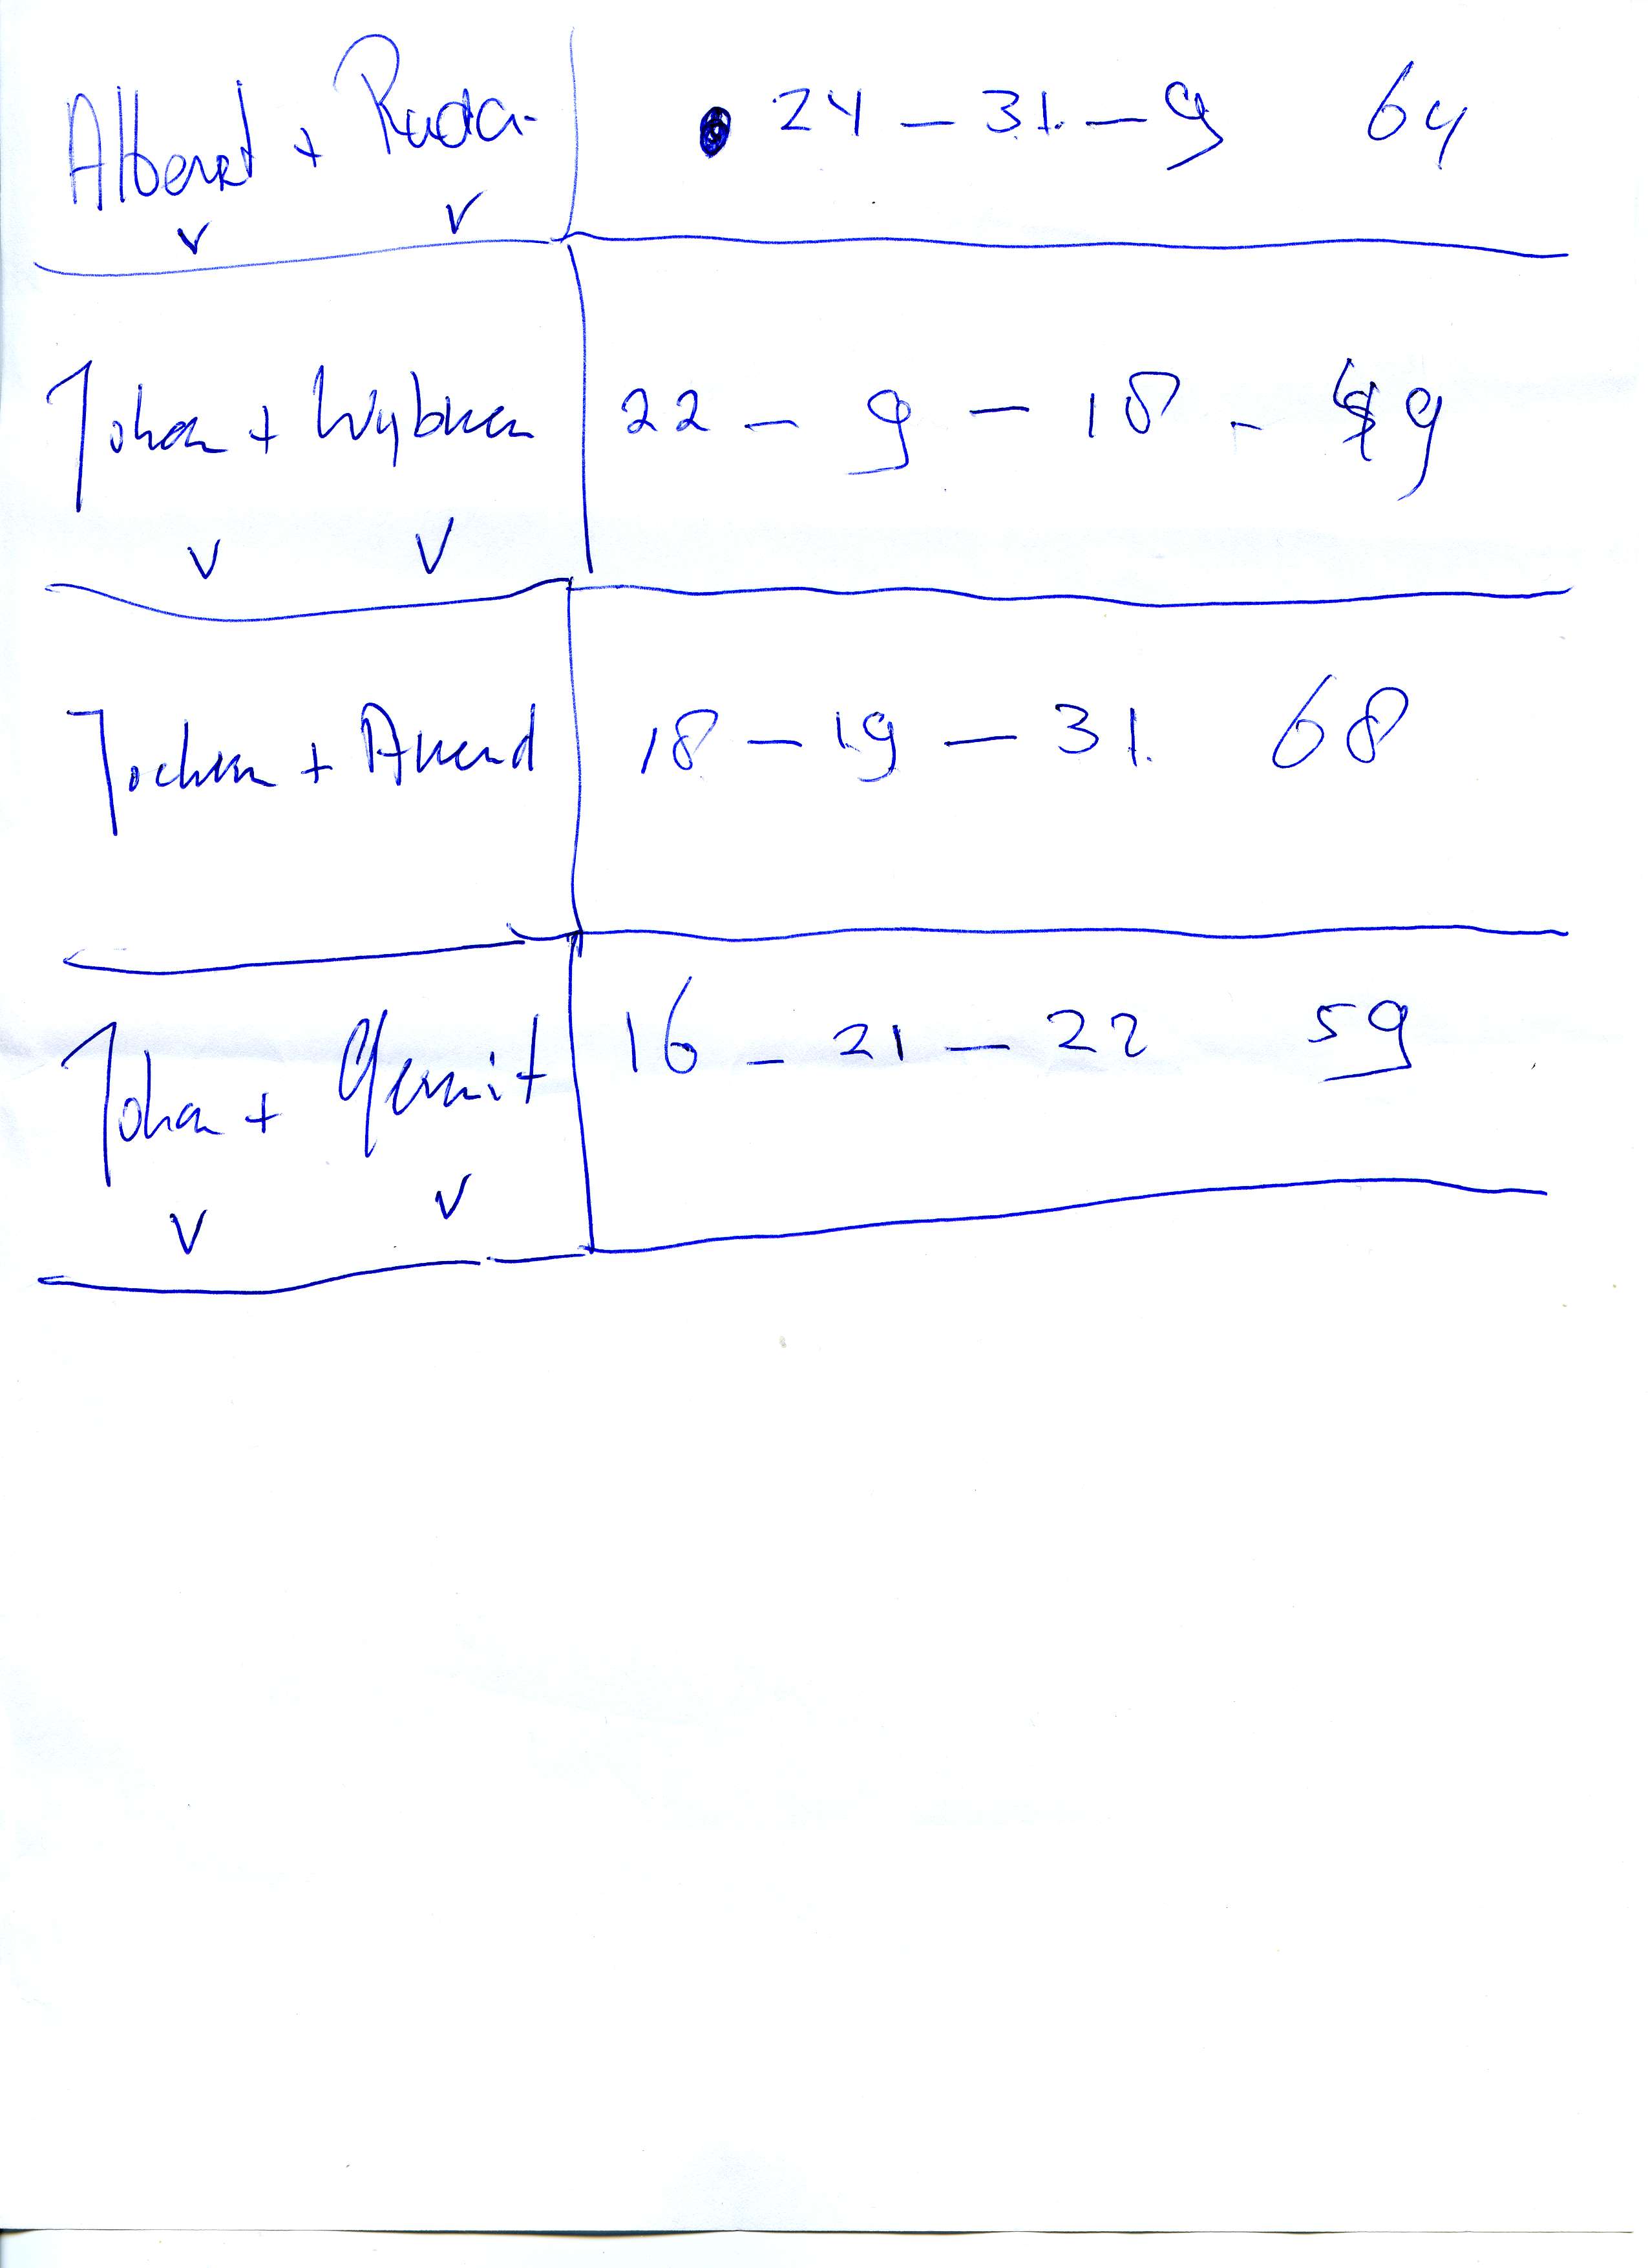 Albert + Ruda 24 - 31. - 9 64
v v
Johan + Wybren 22 - 9 - 18 - 49
v v
Jochem + Arend 18 - 19 - 31. 68
Johan + Gerrit 16 - 21 - 22 59
v v